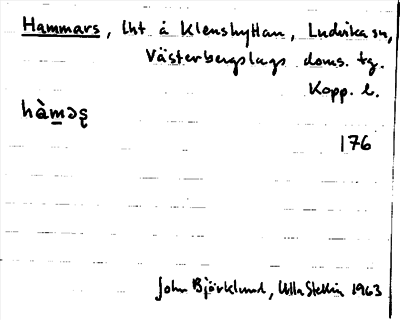 Hammars, lht å Klenshyttan, Ludvika sn,
Västerbergslags doms. tg.
Kopp. l.
hàməş
176
John Björklund, Ulla Stellin 1963